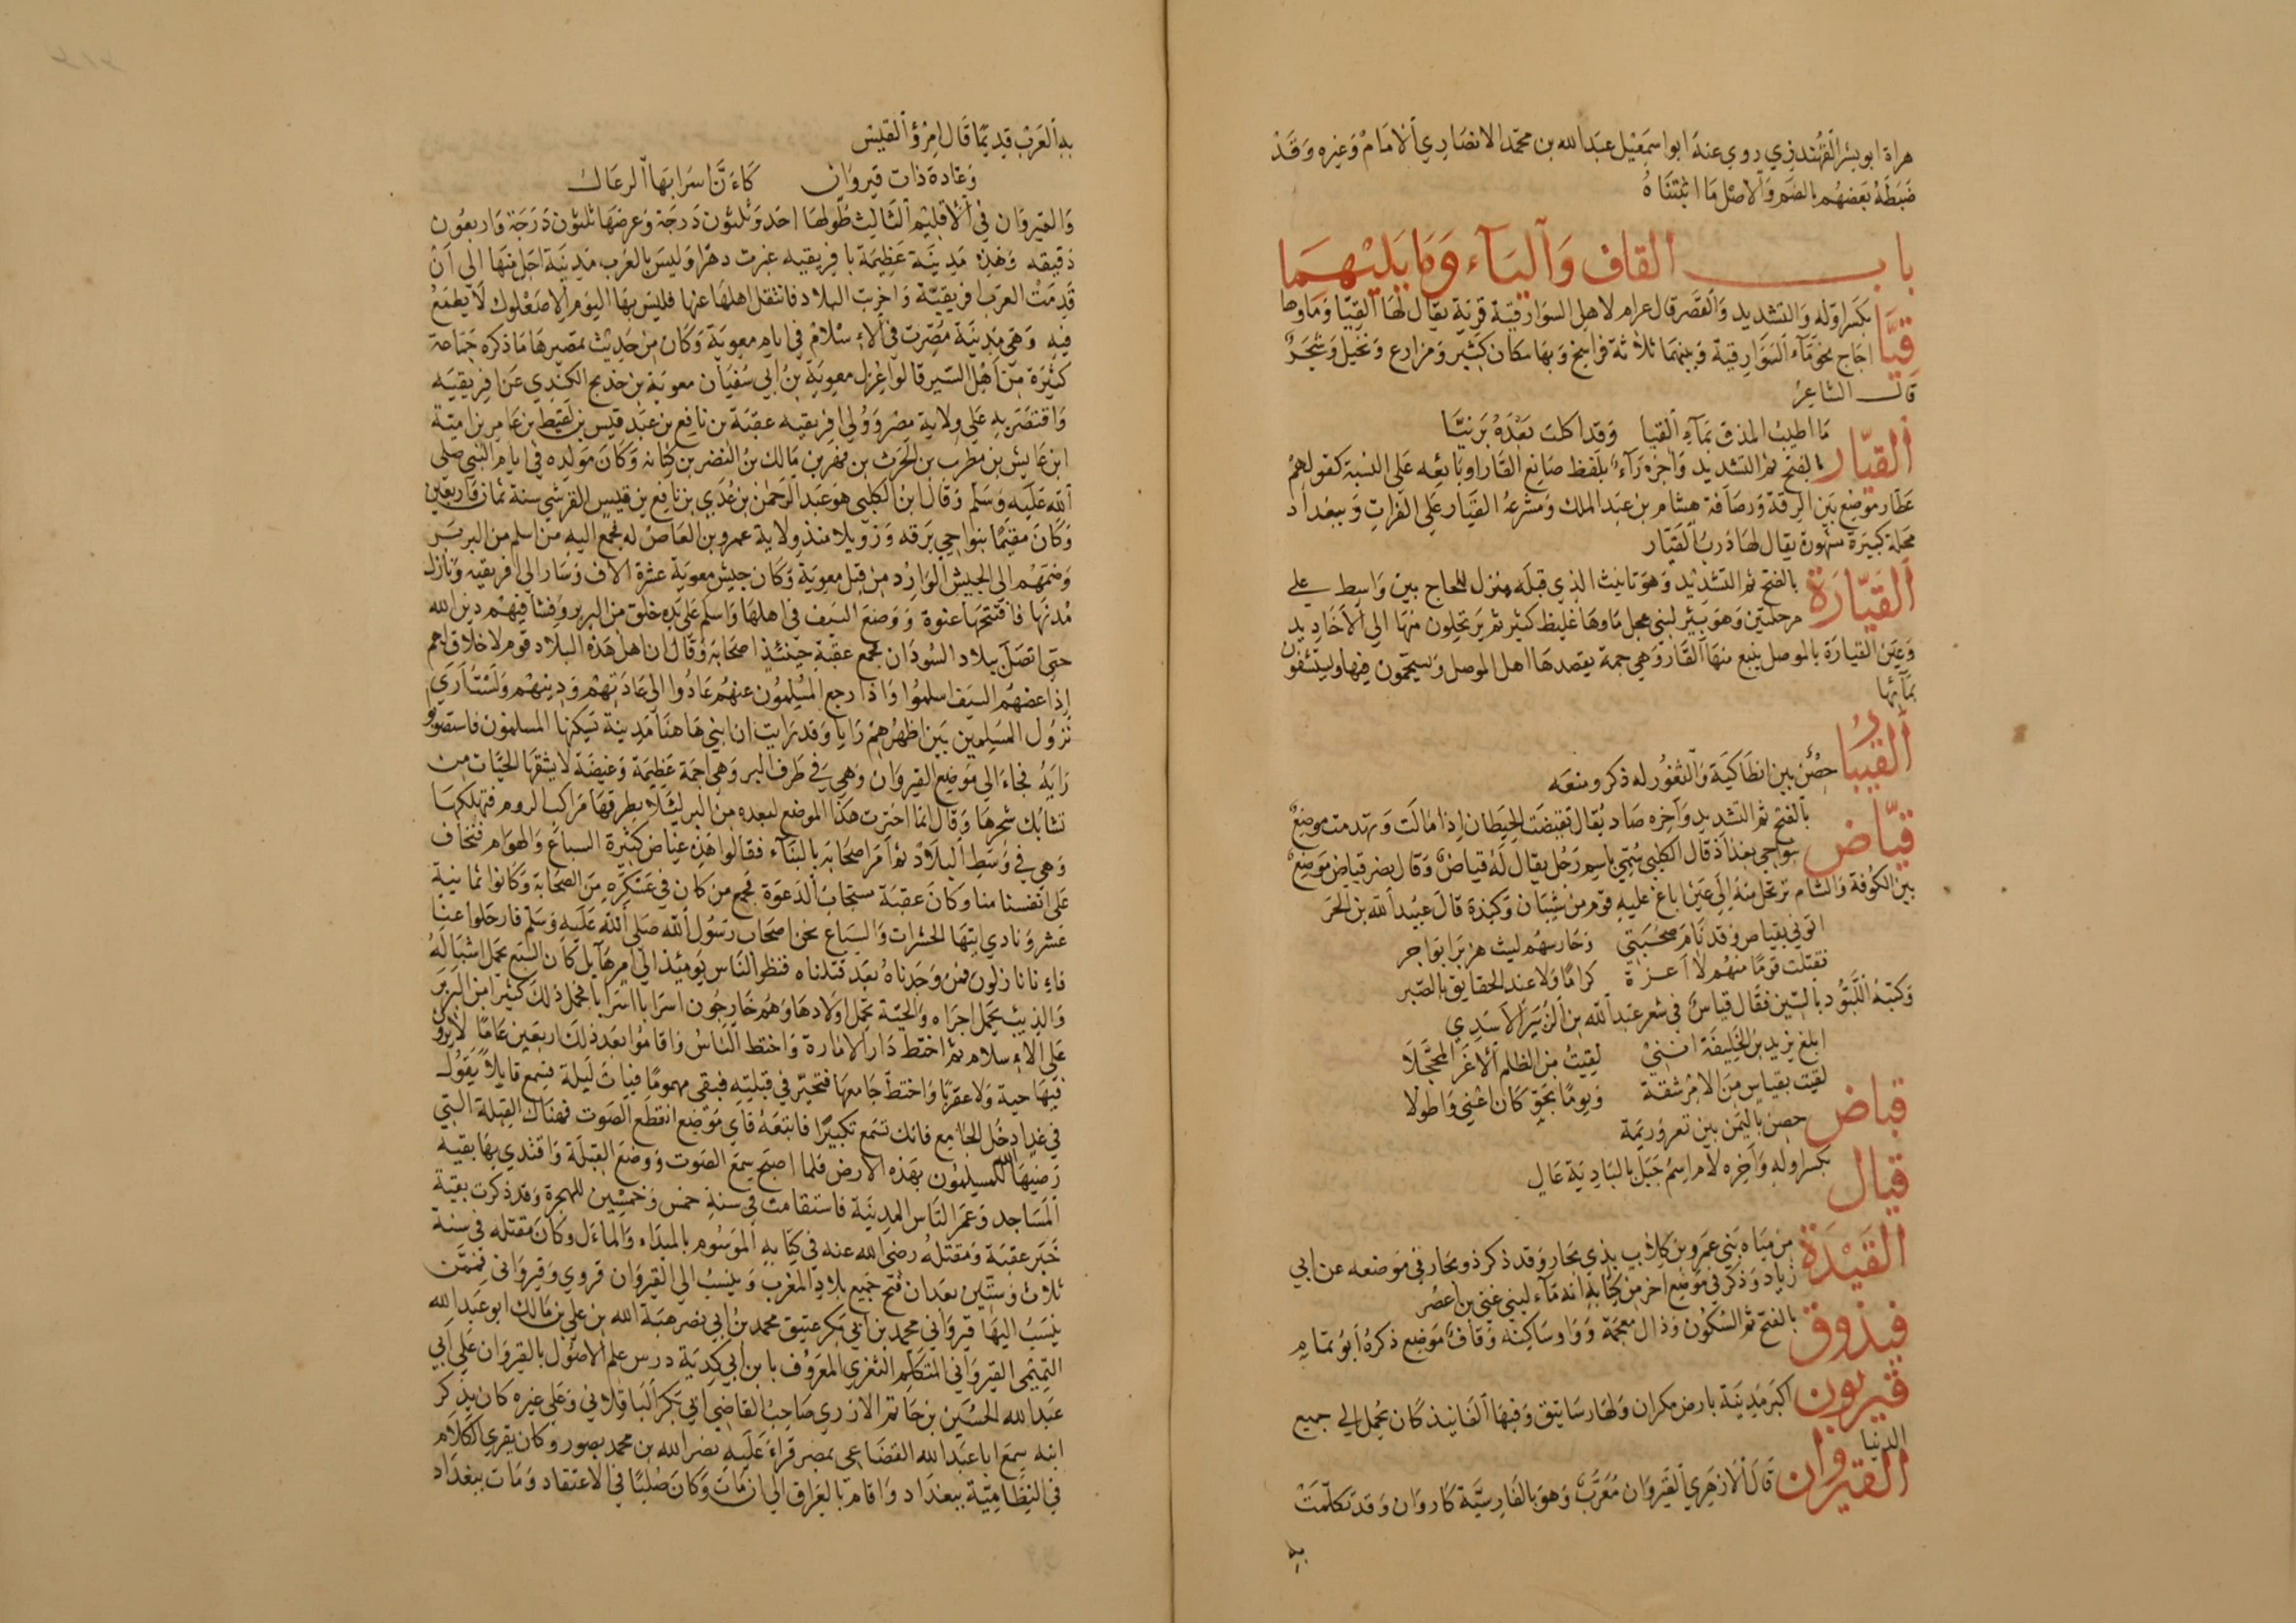 هراة ابو بشر القهندزي روي عنه ابوا سمعيل عبد الله بن محمد الانصاري الامام وغيره وقد
ضبطه بعضهم بالضم والاصل ما اثبتناه
باب القاف والياء وما يليهما
قيّا بكسر اوله والتشديد والقصر قال عرام لاهل السوارقية قرية يقال لها القيا وماوها
اجاج نحو ماء السوارقية وبينهما ثلاثة فراسخ وبها سكان كثير ومزارع ونخيل وشجر
قال الشاعر
ما اطيب المذق بماء القيا وقد اكلت بعده برنيّا
القيّار بالفتح ثم التشديد واخره راء بلفظ صانع القار او بائعه علي النسبة كقولهم
عطار موضع بين الرقة ورصافة هشام بن عبد الملك ومشرعة القيار علي الفرات وببغداد
محلة كبيرة مشهورة يقال لها درب القيار
القيّارة بالفتح ثم التشديد وهو تانيث الذي قبله منزل للحاج بين واسط علي
مرحلتين وهو بئر لبني عجل ماوها غليظ كثير ثم يرتحلون منها الي الاخاديد
وعين القيارة بالموصل ينبع منها القار وهي حمة يقصدها اهل الموصل ويستحمون فيها ويستشفون
بمائها
القيبار حصن بين انطاكية والثغور له ذكر ومنعه
قيّاض بالفتح ثم التشديد وآخره صاد يقال تقيضت الحيطان اذا مالت وتهدمت موضع
بنواحي بغداد قال الكلبي سمي باسم رجل يقال له قياض وقال نصر قياض موضع
بين الكوفة والشام ترتحل منه الي عين اباغ عليه قوم من شيبان وكندة قال عبيد الله بن الحر
اتوني بقياض وقد نام صحبتي وحارسهم ليث هزبر ابو اجر
فقتلت قوما منهم لا اعزة كراما ولا عند الحقايق بالصبر
وكتبه اللبّود بالسين فقال قياس في شعر عبد الله بن الزبير الاسدي
ابلغ يزيد بن الخليفة انني لقيت من الظلم الاغر المحجلا
لقيت بقياس من الامر شقة ويوما بحوّ كان اعني واطولا
قياض حصن باليمن بين تعز وريمة
قيال بكسر اوله وآخره لام اسم جبل بالبادية عال
القيدة من مياه بني عمرو بن كلاب بذي بحار وقد ذكر ذو بحار في موضعه عن ابي
زياد وذكر في موضع اخر من كتابه انه ماء لبني غني بن اعصر
قيذوق بالفتح ثم السكون وذال معجمة وواو ساكنه وقاف موضع ذكره ابو تمام
قيربون اكبر مدينة بارض مكران ولها رساتيق وفيها الفانيذ كان يحمل الي جميع
الدنيا
القيروان قال الازهري القيروان معرّب وهو بالفارسية كاروان وقد تكلمت
به
به العرب قديما قال امرؤ القيس
وغادة ذات قيروان كاءنّ اسرابها الرعال
والقيروان في الاقليم الثالث طولها احد وثلثون درجة وعرضها ثلثون درجة واربعون
دقيقه وهذه مدينة عظيمة بافريقيه غبرت دهرا وليس بالغرب مدينة اجل منها الي ان
قدمت العرب افريقيّة واخربت البلاد فانتقل اهلها عنها فليس بها اليوم الا صعلوك لا يطمع
فيه وهي مدينة مصّرت في الاءسلام في ايام معوية وكان من حديث تمصيرها ما ذكره جماعة
كثيرة من اهل السير قالوا عزل معوية بن ابي سفيان معوية بن خديج الكندي عن افريقيه
واقتصر به علي ولاية مصر وولي افريقيه عقبة بن نافع بن عبد قيس بن لقيط بن عامر بن امية
ابن عايش بن مطرب بن الحرث بن فهر بن مالك بن النضر بن كنانه وكان مولده في ايام النبي صلي
الله عليه وسلم وقال ابن الكلبي هو عبد الرحمن بن عدي بن نافع بن قيس القرشي سنة ثمان واربعين
وكان مقيما بنواحي برقه وزويلا منذ ولاية عمرو بن العاص له فجمع اليه من اسلم من البربر
وضمهم الي الجيش الوارد من قبل معوية وكان جيش معوية عشرة الاف وسار الي افريقيه ونازل
مدنها فافتتحها عنوة ووضع السيف في اهلها واسلم علي يده خلق من البربر وفشا فيهم دين الله
حتي اتصل ببلاد السودان فجمع عقبة حينئذ اصحابه وقال ان اهل هذه البلاد قوم لا خلاق لهم
اذا عضهم السيف اسلموا واذا رجع المسلمون عنهم عادوا الي عادتهم ودينهم ولست اري
نزول المسلمين بين اظهرهم رايا وقد رايت ان ابني هاهنا مدينة تسكنها المسلمون فاستصوبو
رايه فجاء الي موضع القيروان وهي في طرف البر وهي اجمة عظيمة وغيضة لا يشقها الحيات من
تشابك شجرها وقال انما اخترت هذا الموضع لبعده من البر لئلا يطرقها مراكب الروم فتهلكها
وهي في وسط البلاد ثم امر اصحابه بالبناء فقالوا هذه غياض كثيرة السباع والهوام فنخاف
علي انفسنا منا وكان عقبة مستجاب الدعوة فجمع من كان في عسكره من الصحابة وكانوا ثمانية
عشر ونادي ايتها الحشرات والسباع نحن اصحاب رسول الله صلي الله عليه وسلم فارحلوا عنا
فاءنا نازلون فمن وجدناه بعد قتلناه فنظر الناس يومئذ الي امر هايل كان السبع يحمل اشباله
والذيب يحمل اجراه والحية تحمل اولادها وهم خارجون اسرابا اسرابا فحمل ذلك كثيرا من البربر
علي الاءسلام ثم اختط دار الامارة واختط الناس واقاموا بعد ذلك اربعين عاما لا يرون
فيها حية ولا عقربا واختط جامعها فتحيّر في قبلته فبقي مهموما فبات ليلة فسمع قايلا يقول
في غد ادخل الجامع فانك تسمع تكبيرا فاتبعه فاي موضع انقطع الصوت فهناك القبلة التي
رضيها الله للمسلمون بهذه الارض فلما اصبح سمع الصوت ووضع القبلة واقتدي بها بقيه
المساجد وعمر الناس المدينة فاستقامت في سنة خمس وخمسين للهجرة وقد ذكرت بقية
خبر عقبة ومقتله رضي الله عنه في كتابه الموسوم بالمبداء والماءل وكان مقتله في سنة
ثلاث وستين بعد ان فتح جميع بلاد المغرب وينسب الي القيروان قروي وقيرواني فممن
ينسب اليها قيرواني محمد بن ابي بكر عتيق محمد بن ابي نصر هبة الله بن علي بن مالك ابو عبد الله
التميمي القيرواني المتكلم الثغري المعروف بابن ابي كدية درس علم الاصول بالقيروان علي ابي
عبد الله الحسين بن حاتم الازري صاحب القاضي ابي بكر الباقلاني وعلي غيره كان يذكر
انه سمع ابا عبد الله القضاعي بمصر قراءة عليه نصر الله بن محمد بصور وكان يقري الكلام
في النظامية ببغداد واقام بالعراق الي ان مات وكان صلبا في الاعتقاد ومات ببغداد